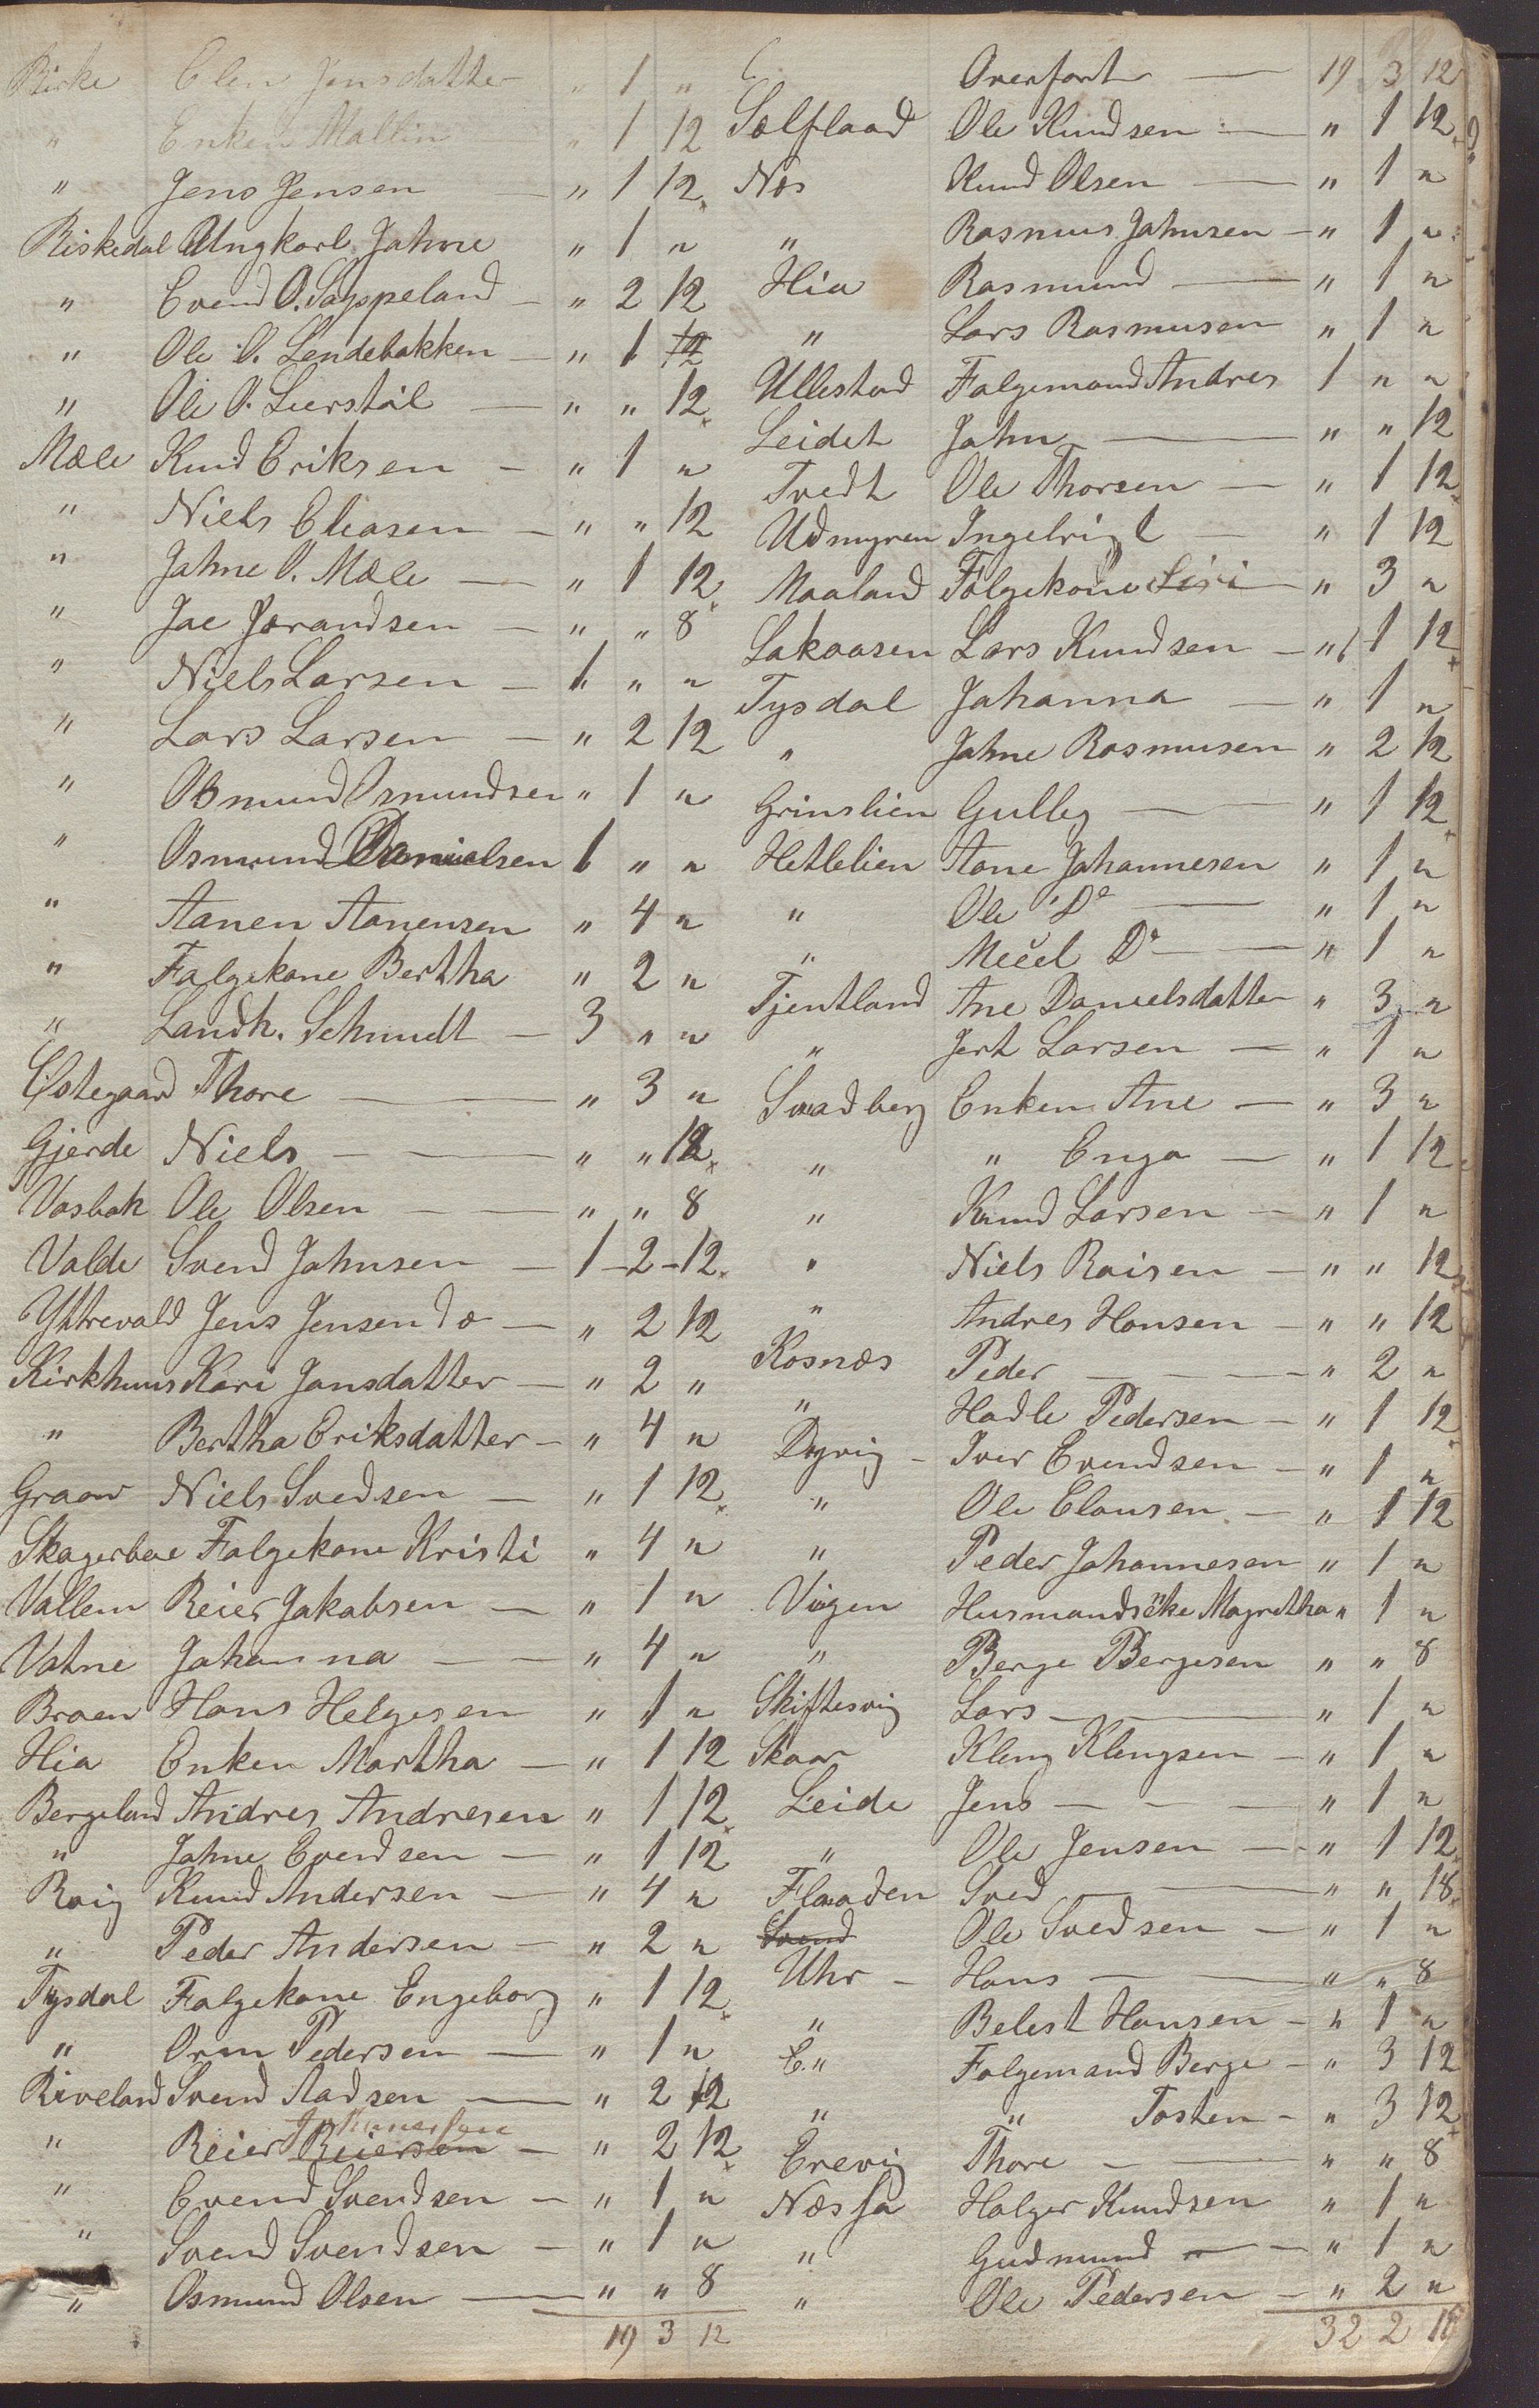 Birke Elen Jensdatter " 1 "
" Enken Mallin " 1 12
" Jens Jensen — " 1 12
Riskedal Ungkarl Jahne " 1 "
" Evend O. Soppeland — " 2 12
" Ole O. Lendebakken — " 1 12
" Ole O. Leerstøl — " " 12
Mæle Knud Eriksen — " 1 "
" Niels Eliasen — " " 12
" Jahne O. Mæle — " 1 12
" Jae Jorandsen — " " 8
" Niels Larsen — 1 " "
" Lars Larsen — " 2 12
" Osmund Osmundsen " 1 "
" Osmund Danielsen 1 " "
" Aanen Aanensen " 4 "
" Falgekone Bertha " 2 "
" Landh. Schmidt — 3 " "
Østegaard Thore — " 3 "
Gjerde Niels — " " 12
Vasbak Ole Olsen — " " 8
Valde Svend Jahnsen — 1 - 2 - 12
Yttrevald Jens Jensen do — " 2 12
Kirkhuus Kari Jansdatter — " 2 "
" Bertha Eriksdatter — " 4 "
Graaw Niels Svedsen — " 1 12
Skagerbae Falgekone Kristi " 4 "
Vallem Reier Jakabsen — " 1 "
Vatne Johanna — " 4 "
Braen Hans Helgesen " 1 "
Hia Enken Martha — " 1 12
Bergeland Andres Andresen " 1 12
" Jahne Evendsen — " 1 12
Roig Knud Andersen — " 4 "
" Peder Andersen — " 2 "
Tysdal Falgekone Engeborg " 1 12
" Orm Pedersen — " 1 "
Riveland Svend Aadsen — " 2 12
" Reier Reiersen — " 2 12
" Evend Svendsen — " 1 "
" Svend Svendsen — " 1 "
" Osmund Olsen — " " 8
19 3 12
Overført — 19 3 12
Sælflaad Ole Knudsen — " 1 12
Nes Knud Olsen — " 1 "
" Rasmus Jahnsen — " 1 "
Hia Rasmund — " 1 "
" Lars Rasmusen " 1 "
Ullestad Falgemand Andres 1 " "
Leidet Jahn — " " 12
Tvedt Ole Thorsen — " 1 12
Udmyren Ingebrigt — " 1 12
Maaland Falgekone Siri — " 3 "
Lakaasen Lars Knudsen — " 1 12
Tysdal Johanna — " 1 "
" Jahne Rasmusen " 2 12
Grinslien Gulleg — " 1 12
Hetlelien Aane Johannesen " 1 "
" Ole Do — " 1 "
" Meĉel Do — " 1 "
Tjentland Ane Danielsdatter " 3 "
" Jert Larsen — " 1 "
Svadberg Enken Ane — " 3 "
" " Enga — " 1 12
" Knud Larsen — " 1 "
" Niels Roisen — " " 12
" Andres Hansen — " " 12
Kosnæs Peder — " 2 "
" Hadle Pedersen — " 1 12
Dyrvig — Iver Evendsen — " 1 "
" Ole Clausen — " 1 12
" Peder Johannesen " 1 "
Viigen Husmandsëke Magretha " 1 "
" Berge Bergesen " " 8
Skiftesvig Lars — " 1 "
Skaar Kleng Klengsen — " 1 "
Leide Jens — " 1 "
" Ole Jensen — " 1 12
Flaaden Sved — " " 18
Svend Ole Svedsen — " 1 "
Uhr — Hans — " " 8
" Belest Hansen — " 1 "
E. " Falgemand Berge — " 3 12
" " Tosten — " 3 12
Erevig Thore — " " 8
Næssa Holger Knudsen " 1 "
" Gudmund — " 1 "
" Ole Pedersen — " 2 "
32 2 18